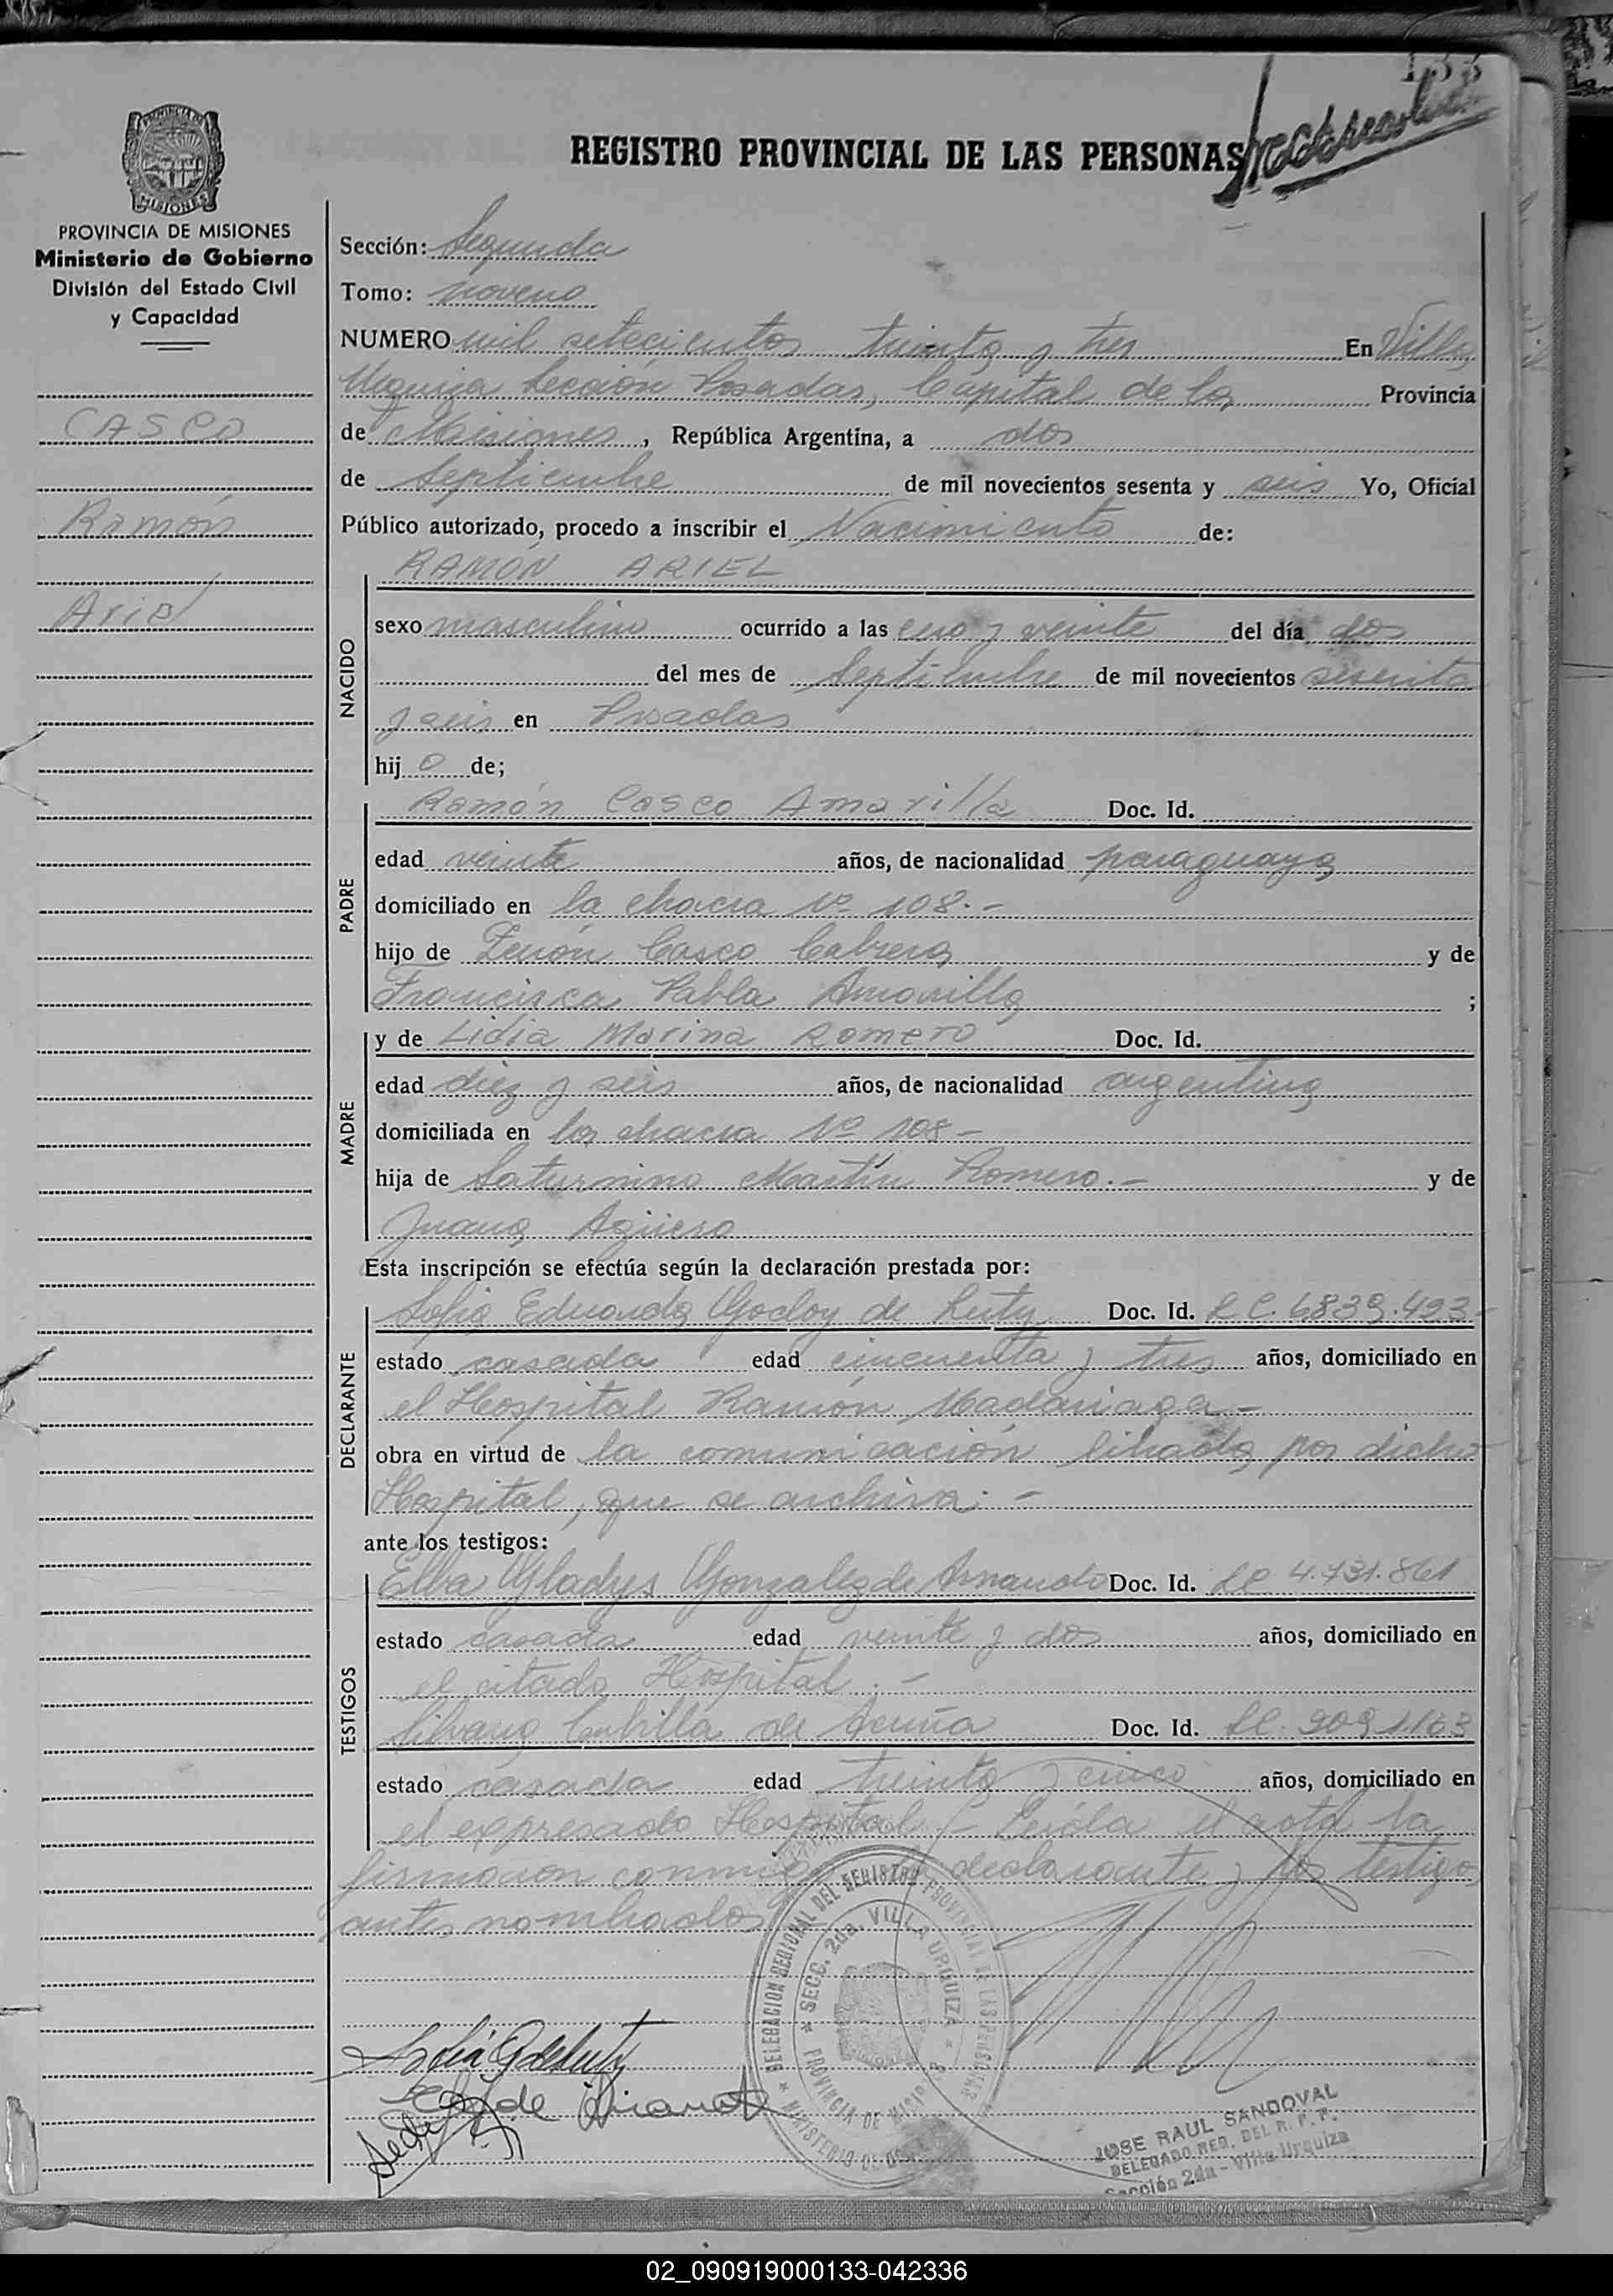 133
REGISTRO PROVINCIAL DE LAS PERSONAS
PROVINCIA DE MISIONES
Ministerio de Gobierno
División del Estado Civil
y Capacidad
CASCO
Ramón
Ariel
Sección: Segunda
Tomo: noveno
NUMERO mil setecientos treinta y tres En Villa
Urquiza Sección Posadas, Capital de la Provincia
de Misiones, República Argentina, a dos
de Septiembre de mil novecientos sesenta y seis Yo, Oficial
Público autorizado, procedo a inscribir el Nacimiento de:
RAMÓN ARIEL
NACIDO
sexo masculino ocurrido a las cero y veinte del día dos
del mes de Septiembre de mil novecientos sesenta
y seis en Posadas
hijo de;
PADRE
Ramón Casco Amarilla Doc. Id.
edad veinte años, de nacionalidad paraguaya
domiciliado en la chacra Nº 108.-
hijo de Zenón Casco Cabrera y de
Francisca Pabla Amarilla ;
MADRE
y de Lidia Marina Romero Doc. Id.
edad diez y seis años, de nacionalidad argentina
domiciliada en la chacra Nº 108-
hija de Saturnino Martín Romero.- y de
Juana Agüero
Esta inscripción se efectúa según la declaración prestada por:
DECLARANTE
Sofia Eduarda Godoy de Luty Doc. Id. L.C. 6839.423-
estado casada edad cincuenta y tres años, domiciliado en
el Hospital Ramón Madariaga-
obra en virtud de la comunicación librada por dicho
Hospital, que se archiva.-
ante los testigos:
TESTIGOS
Elba Gladys Gonzalez de Doc. Id. LC 4.731.861
estado casada edad veinte y dos años, domiciliado en
el citado Hospital.-
Silvana de Acuña Doc. Id. LC. 909 1163
estado casada edad treinta y cinco años, domiciliado en
el expresado Hospital.- Leída el acta la
firmaron conmigo declarante y los testigos
antes nombrados
DELEGACION REGIONAL DEL REGISTRO PROVINCIAL DE LAS PERSONAS
SECC. 2da. VILLA URQUIZA
PROVINCIA DE MISIONES
MINISTERIO DE
JOSE RAUL SANDOVAL
DELEGADO REG. DEL R. P. P.
Sección 2da - Villa Urquiza
02_090919000133-042336